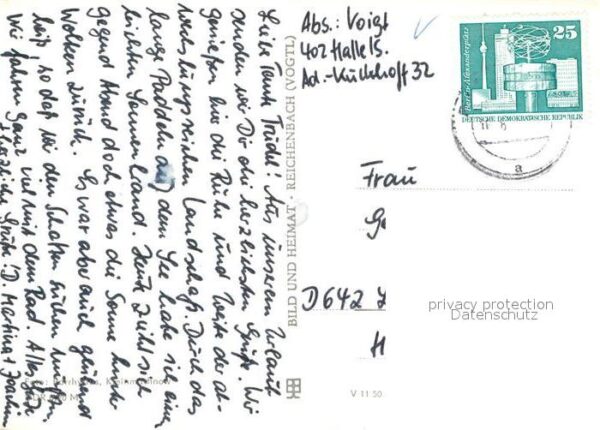 Liebe Familie Trödel! Aus unserem Urlaub
senden wir Dir die herzlichsten Grüße. Wir
genießen hier die Ruhe und Weite der ab-
wechslungsreichen Landschaft. Durch das
lange Paddeln auf dem See habe ich einen
leichten Sonnenbrand. Heute zieht sich
gegen Abend doch etwas die Sonne hinter
Wolken zurück. Es war aber auch glühend
heiß so daß wir den Schatten suchen mußten.
Wir fahren ganz viel mit dem Rad. Alles Gute
Herzliche Grüße! D. Martina + Joachim
BILD UND HEIMAT · REICHENBACH (VOGTL)
V 11 50
Abs.: Voigt
402 Halle/S.
Ad.-Kuckhoff 32
25
Berlin-Alexanderplatz
DEUTSCHE DEMOKRATISCHE REPUBLIK
a
Frau
Ge
D 642
H
privacy protection
Datenschutz